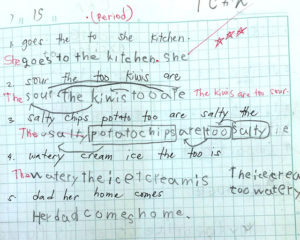 . (period)
1, goes the to she kitchen.
She goes to the kitchen. She
2. sour the too kiwis are
The sour the kiwis too are The kiwis are too sour.
3. salty chips potato too are salty the
The salty potato chips are too salty
4. watery cream ice the too is
The watery the ice cream is The ice cream
too watery
5. dad her home comes
Her dad comes home.